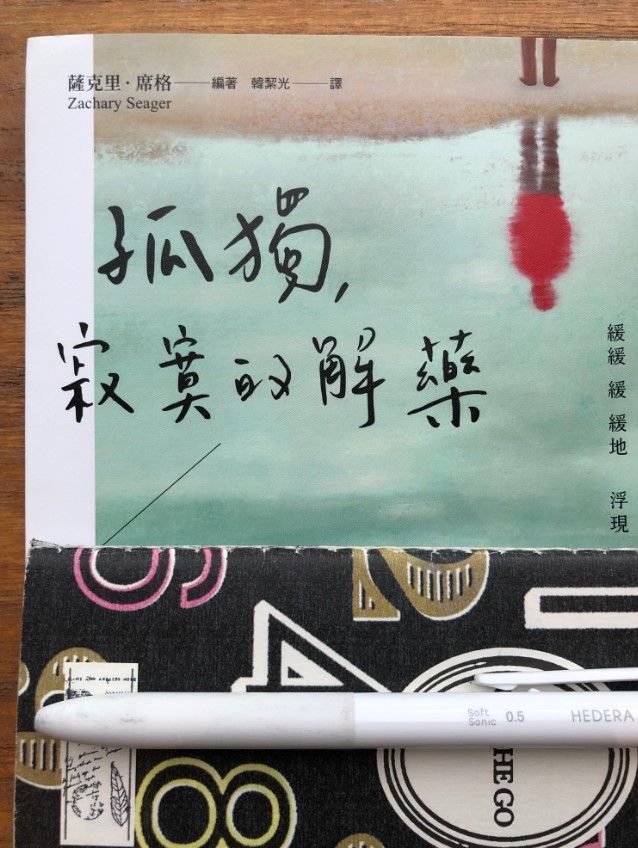 薩克里·席格——編著 韓絜光——譯
Zachary Seager
孤獨,
寂寞的解藥
緩緩 緩 緩地 浮現
Soft Sonic 0.5 HEDERA
HE GO